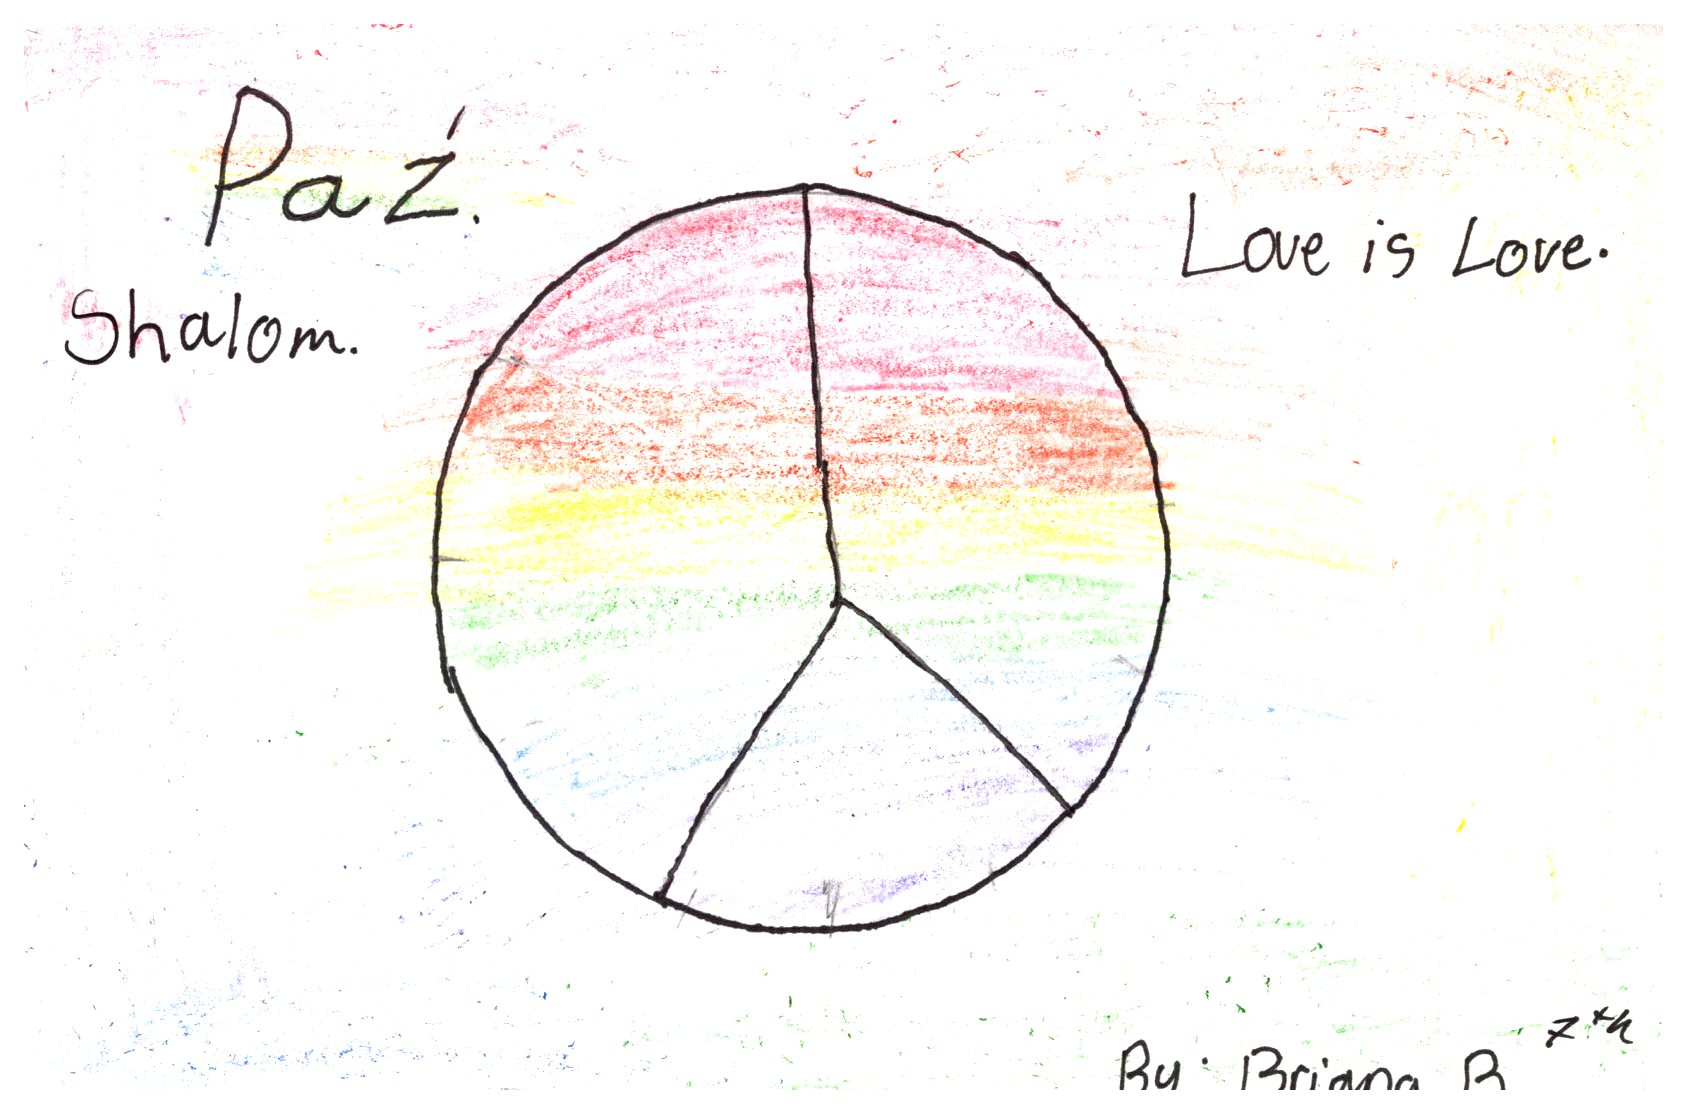 Paź.
Shalom.
Love is Love.
7th
By: Briana B